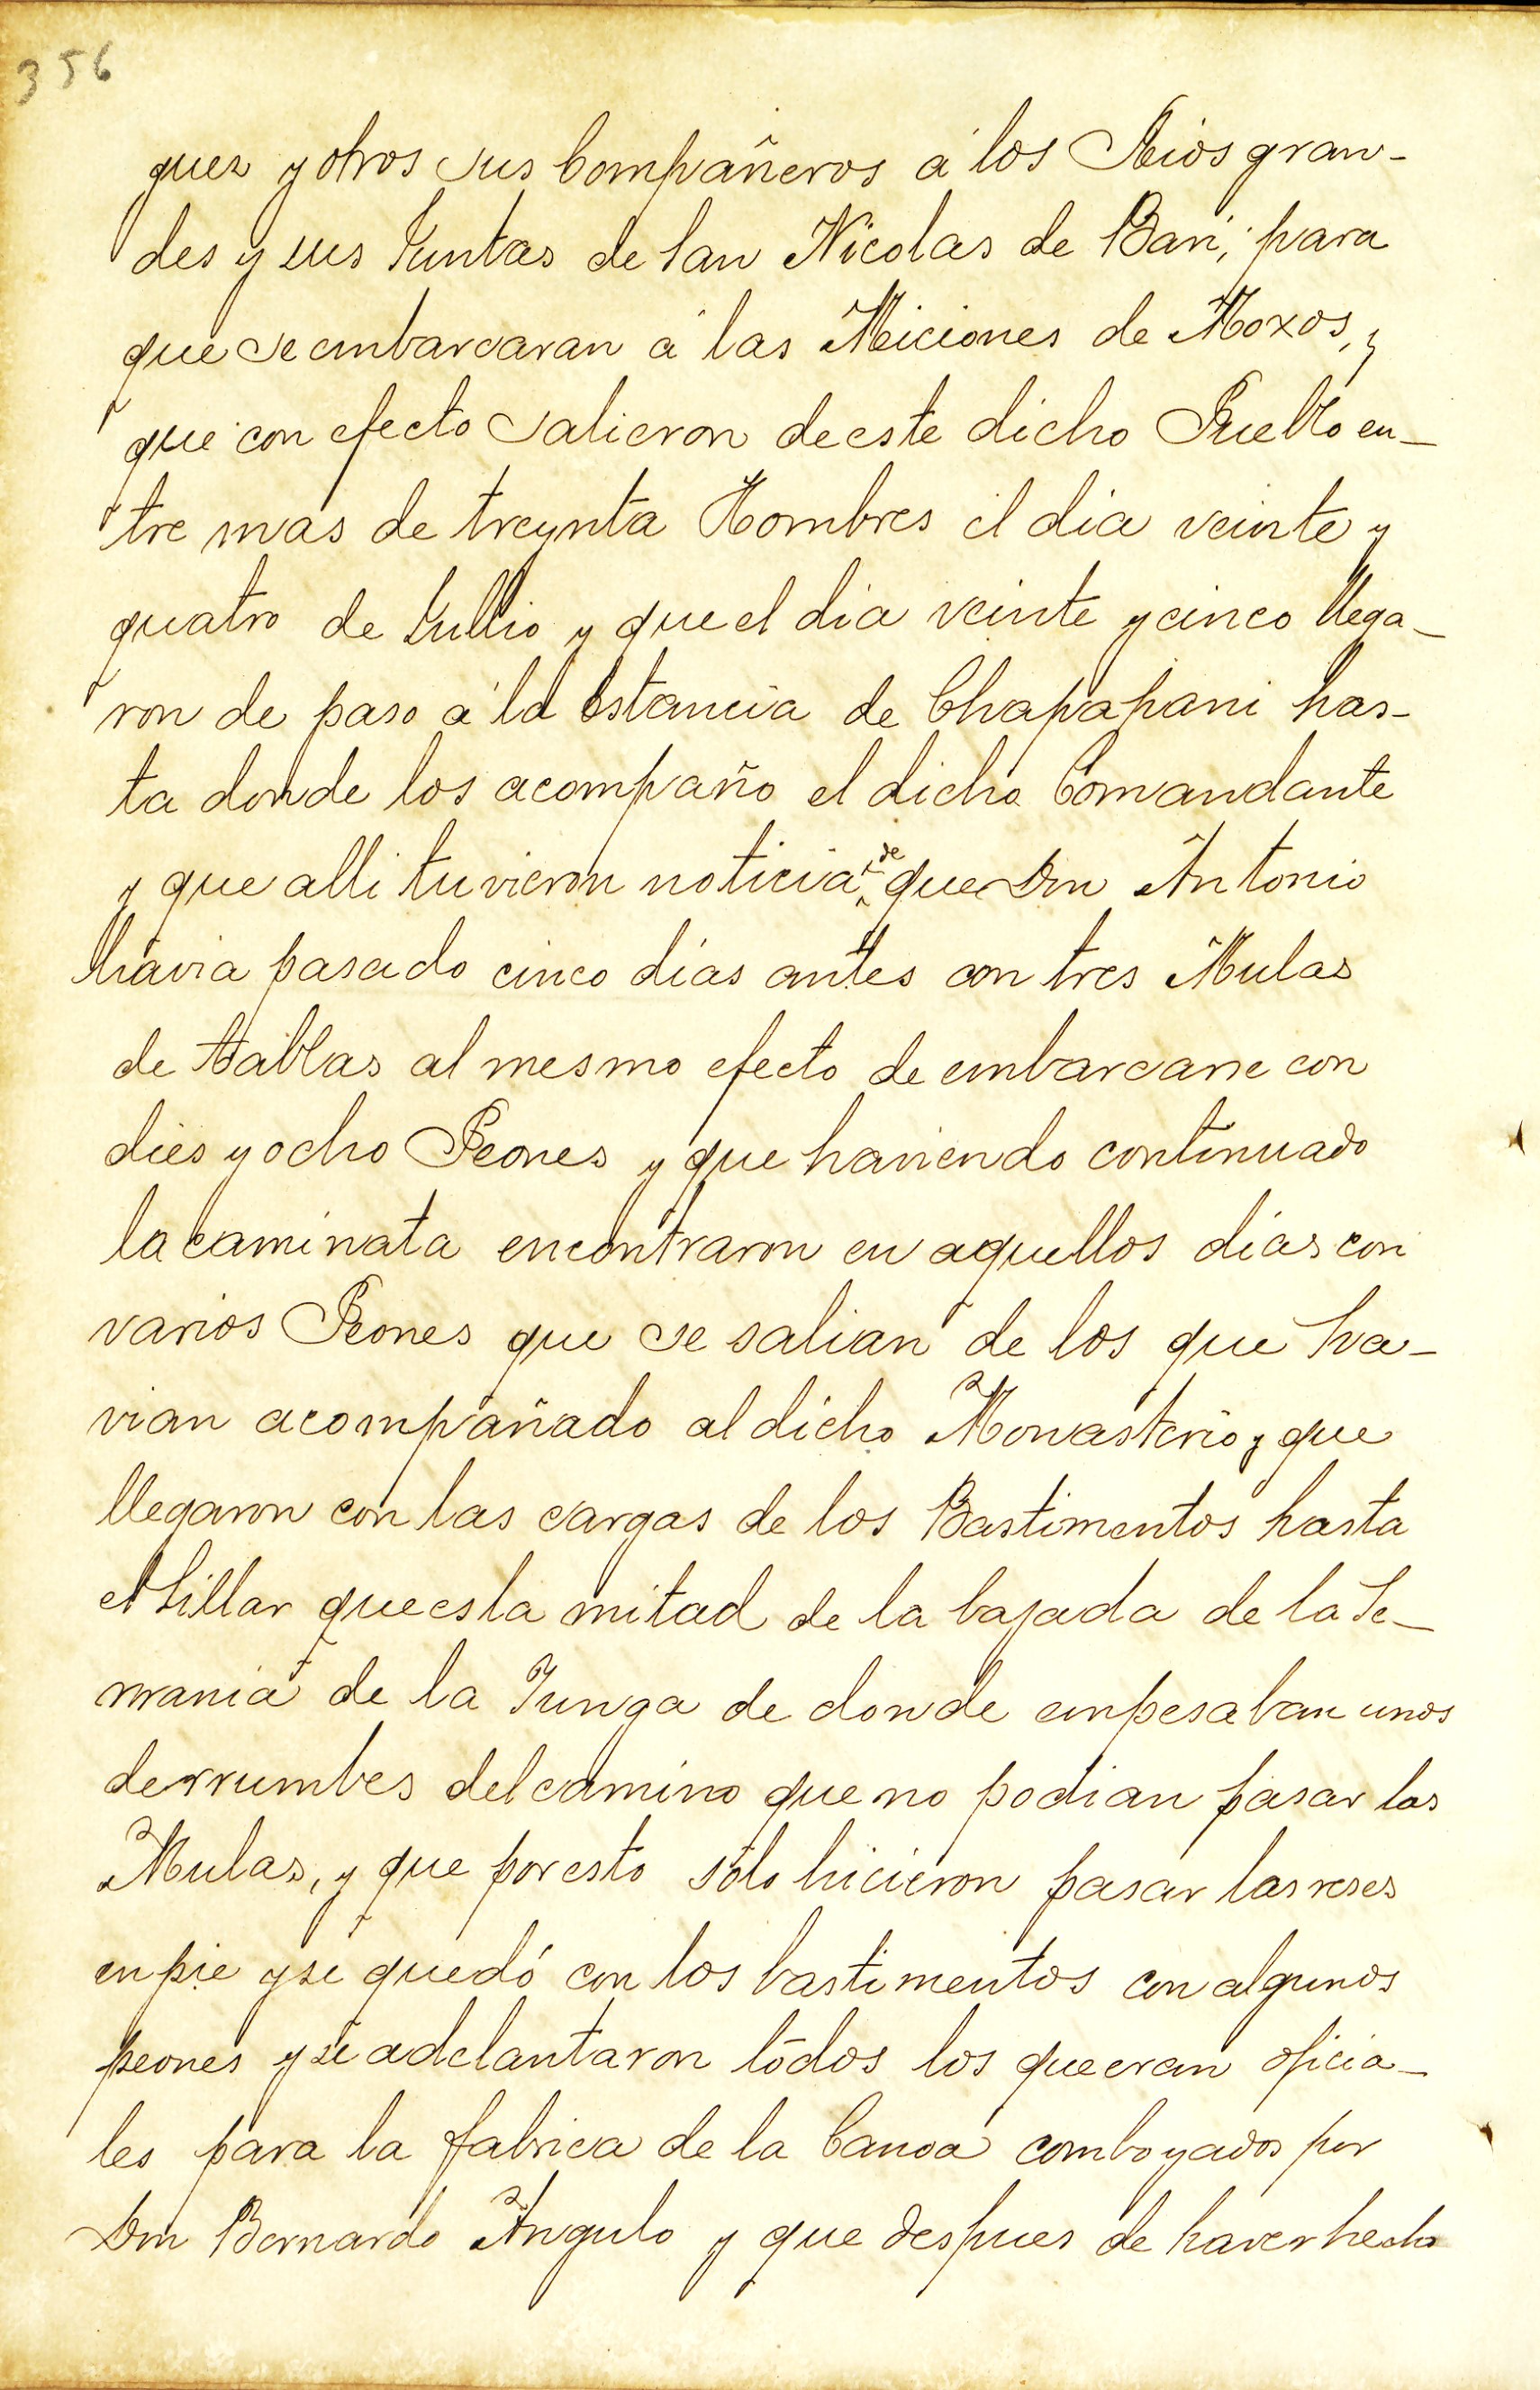 356
quez y otros sus Compañeros á los Rios gran-
des y sus Juntas de San Nicolas de Bari; para
que se embarcaran á las Miciones de Moxos, y
que con efecto salieron de este dicho Pueblo en-
tre mas de treynta Hombres el dia veinte y
quatro de Jullio y que el dia veinte y cinco llega-
ron de paso á la Estancia de Chapapani has-
ta donde los acompaño el dicho Comandante
y que alli tuvieron noticia de que Don Antonio
havia pasado cinco dias antes con tres Mulas
de tablas al mesmo efecto de embarcarse con
dies y ocho Peones y que haviendo continuado
la caminata encontraron en aquellos dias con
varios Peones que se salian de los que ha-
vian acompañado al dicho Monasterio y que
llegaron con las cargas de los Bastimentos hasta
el Sillar que es la mitad de la bajada de la Se-
rrania de la Yunga de donde empesaban unos
derrumbes del camino que no podian pasar las
Mulas, y que por esto solo hicieron pasar las reses
en pie y se quedó con los bastimentos con algunos
peones y se adelantaron todos los que eran oficia-
les para la fabrica de la Canoa comboyados por
Don Bernardo Angulo y que despues de haver hecho